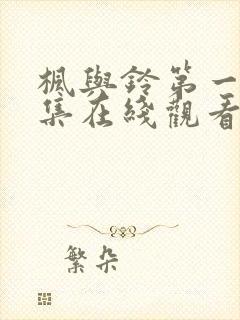 楓與鈴第一
集在綫觀看
繁朵